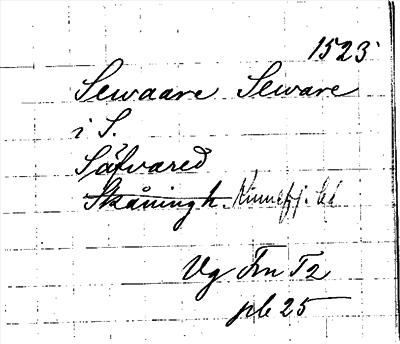 1523
Sewaare Seware
i S.
Säfvared
Skåning h. Kinnefj. hd
Vg Fm T2
pb 25